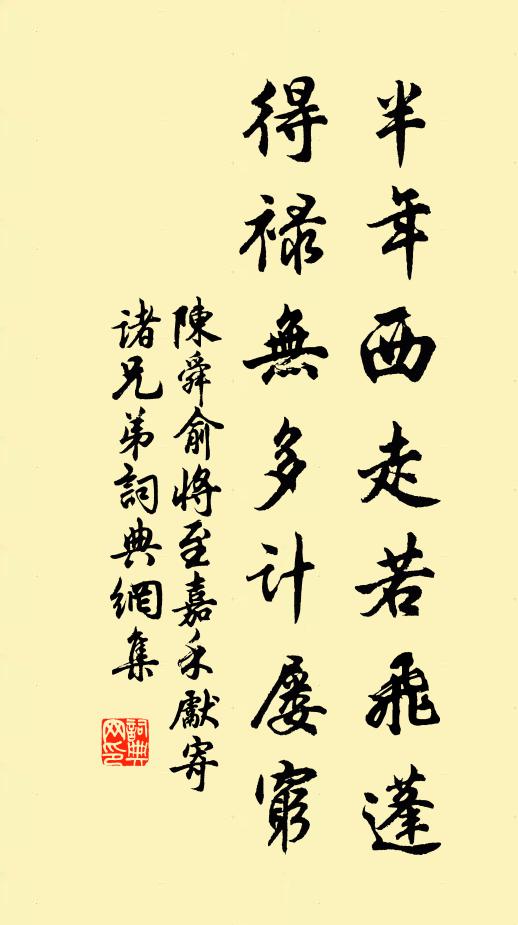 半年西走若飛蓬
得祿無多計屢窮
陳舜俞將至嘉禾獻寄
諸兄弟詞典網集
詞典
网印